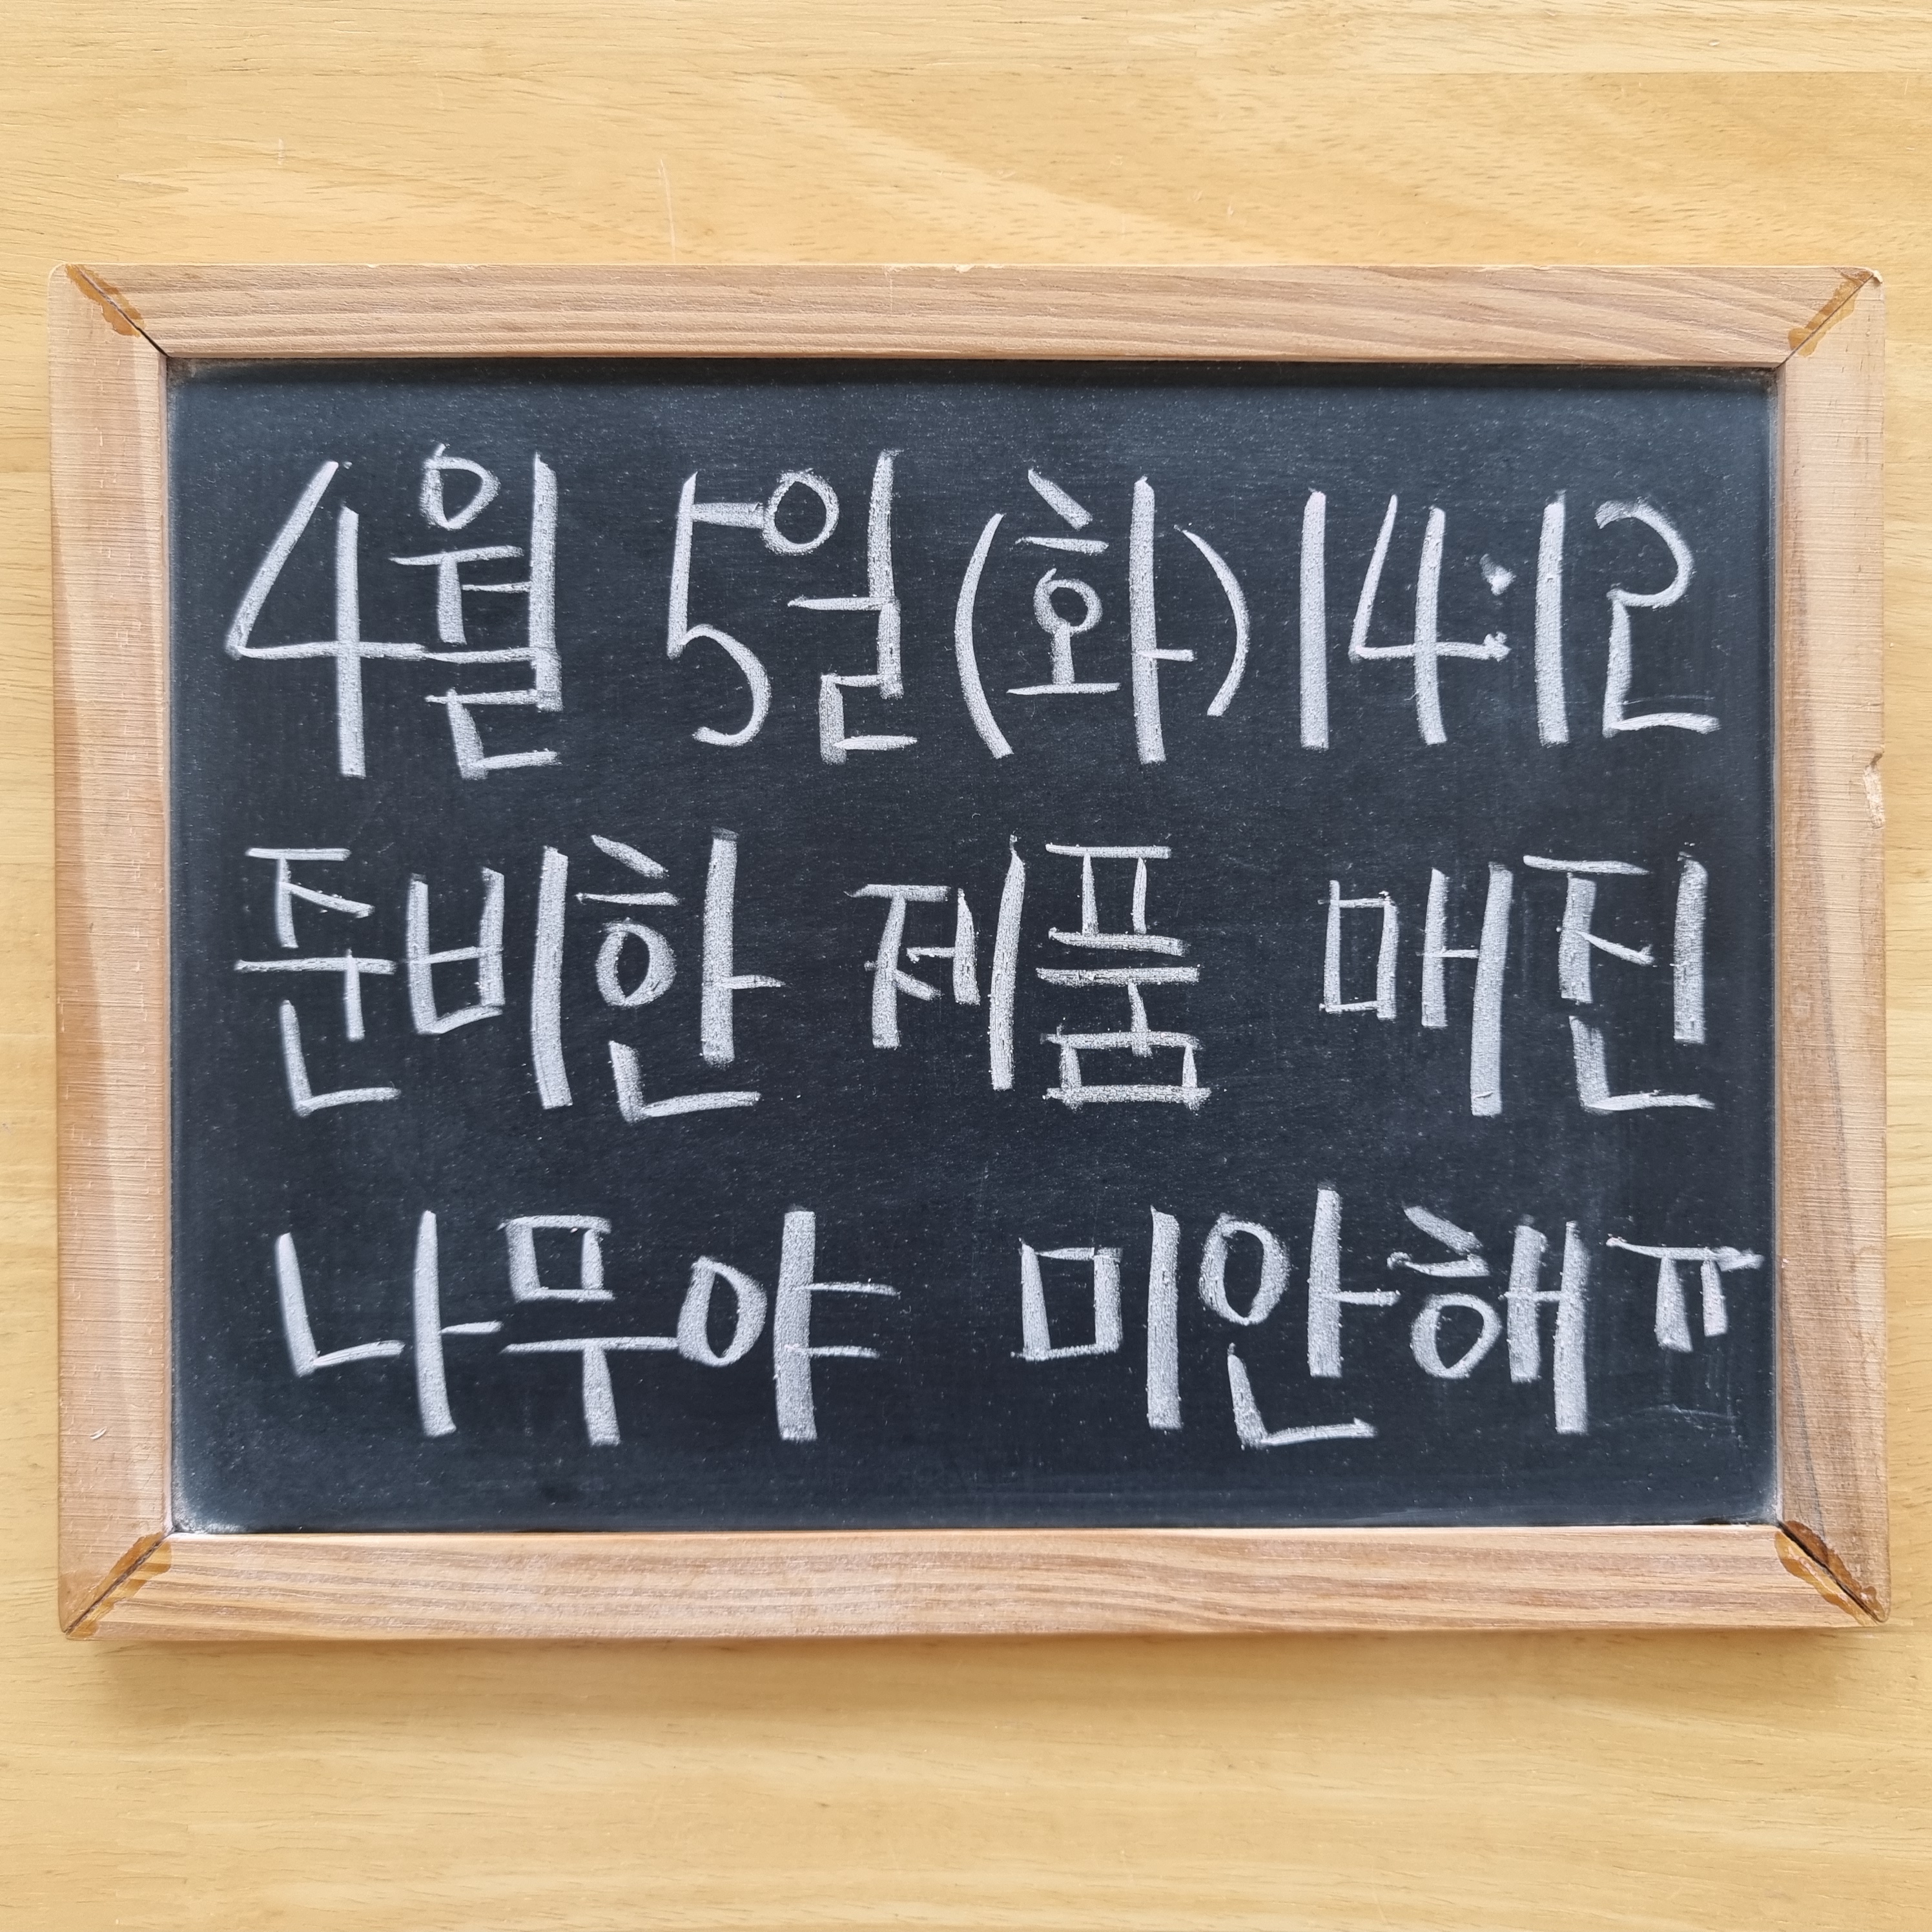 4월 5일(화) 14:12
준비한 제품 매진
나무야 미안해ㅠ